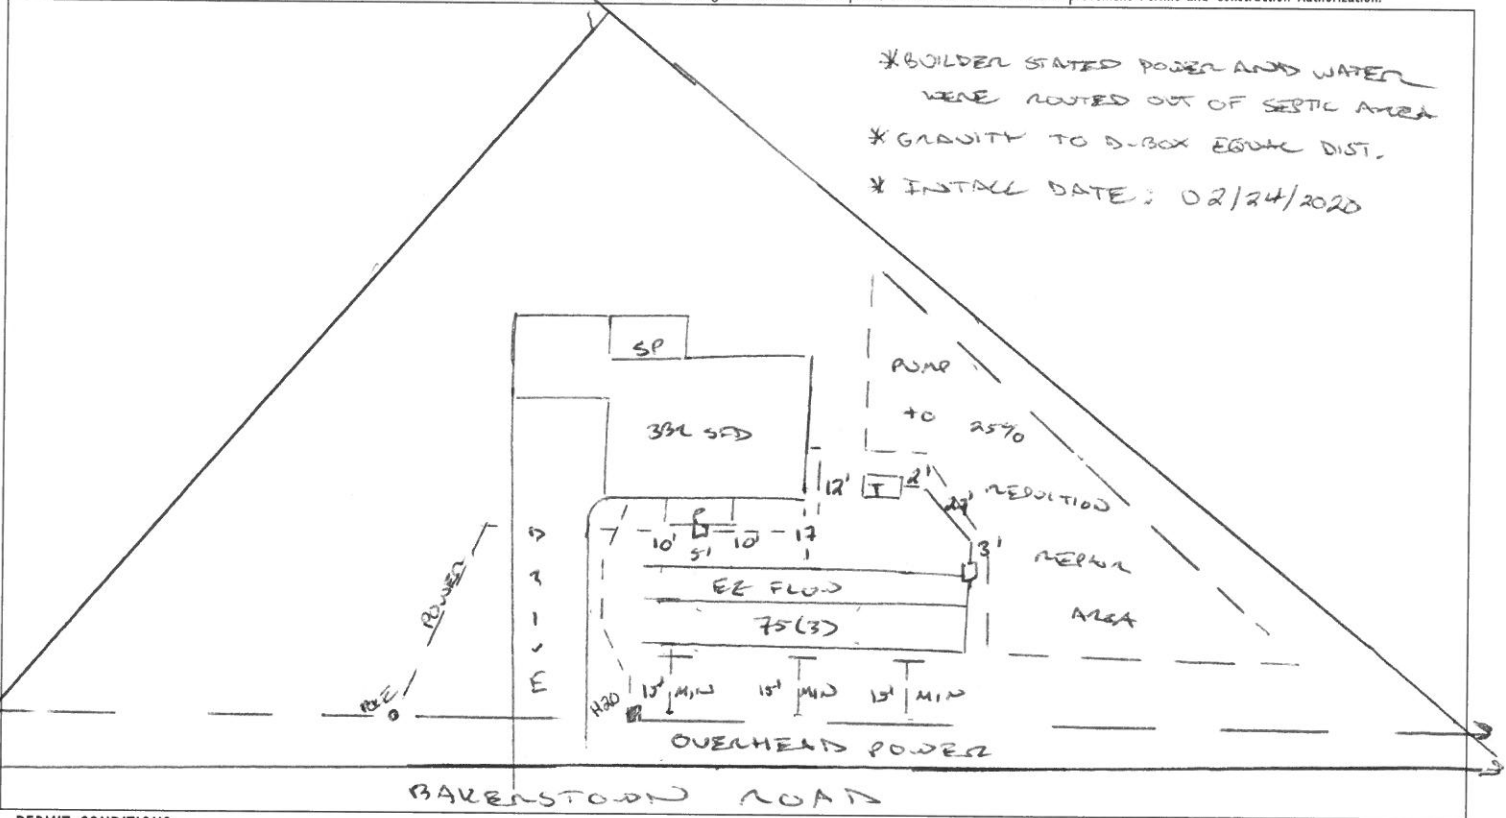 *BUILDER STATED POWER AND WATER
WERE ROUTED OUT OF SEPTIC AREA
*GRAVITY TO D-BOX EQUAL DIST.
* INSTALL DATE: 02/24/2020
SP
SFD
PUMP
to 25%
REDUCTION
REPAIR
AREA
12' T 2'
3'
P
10' 5' 10' 17
EZ FLOW
75(3)
POWER
DRIVE
POLE
H20
15' MIN 15' MIN 15' MIN
OVERHEAD POWER
BAKERSTOWN ROAD